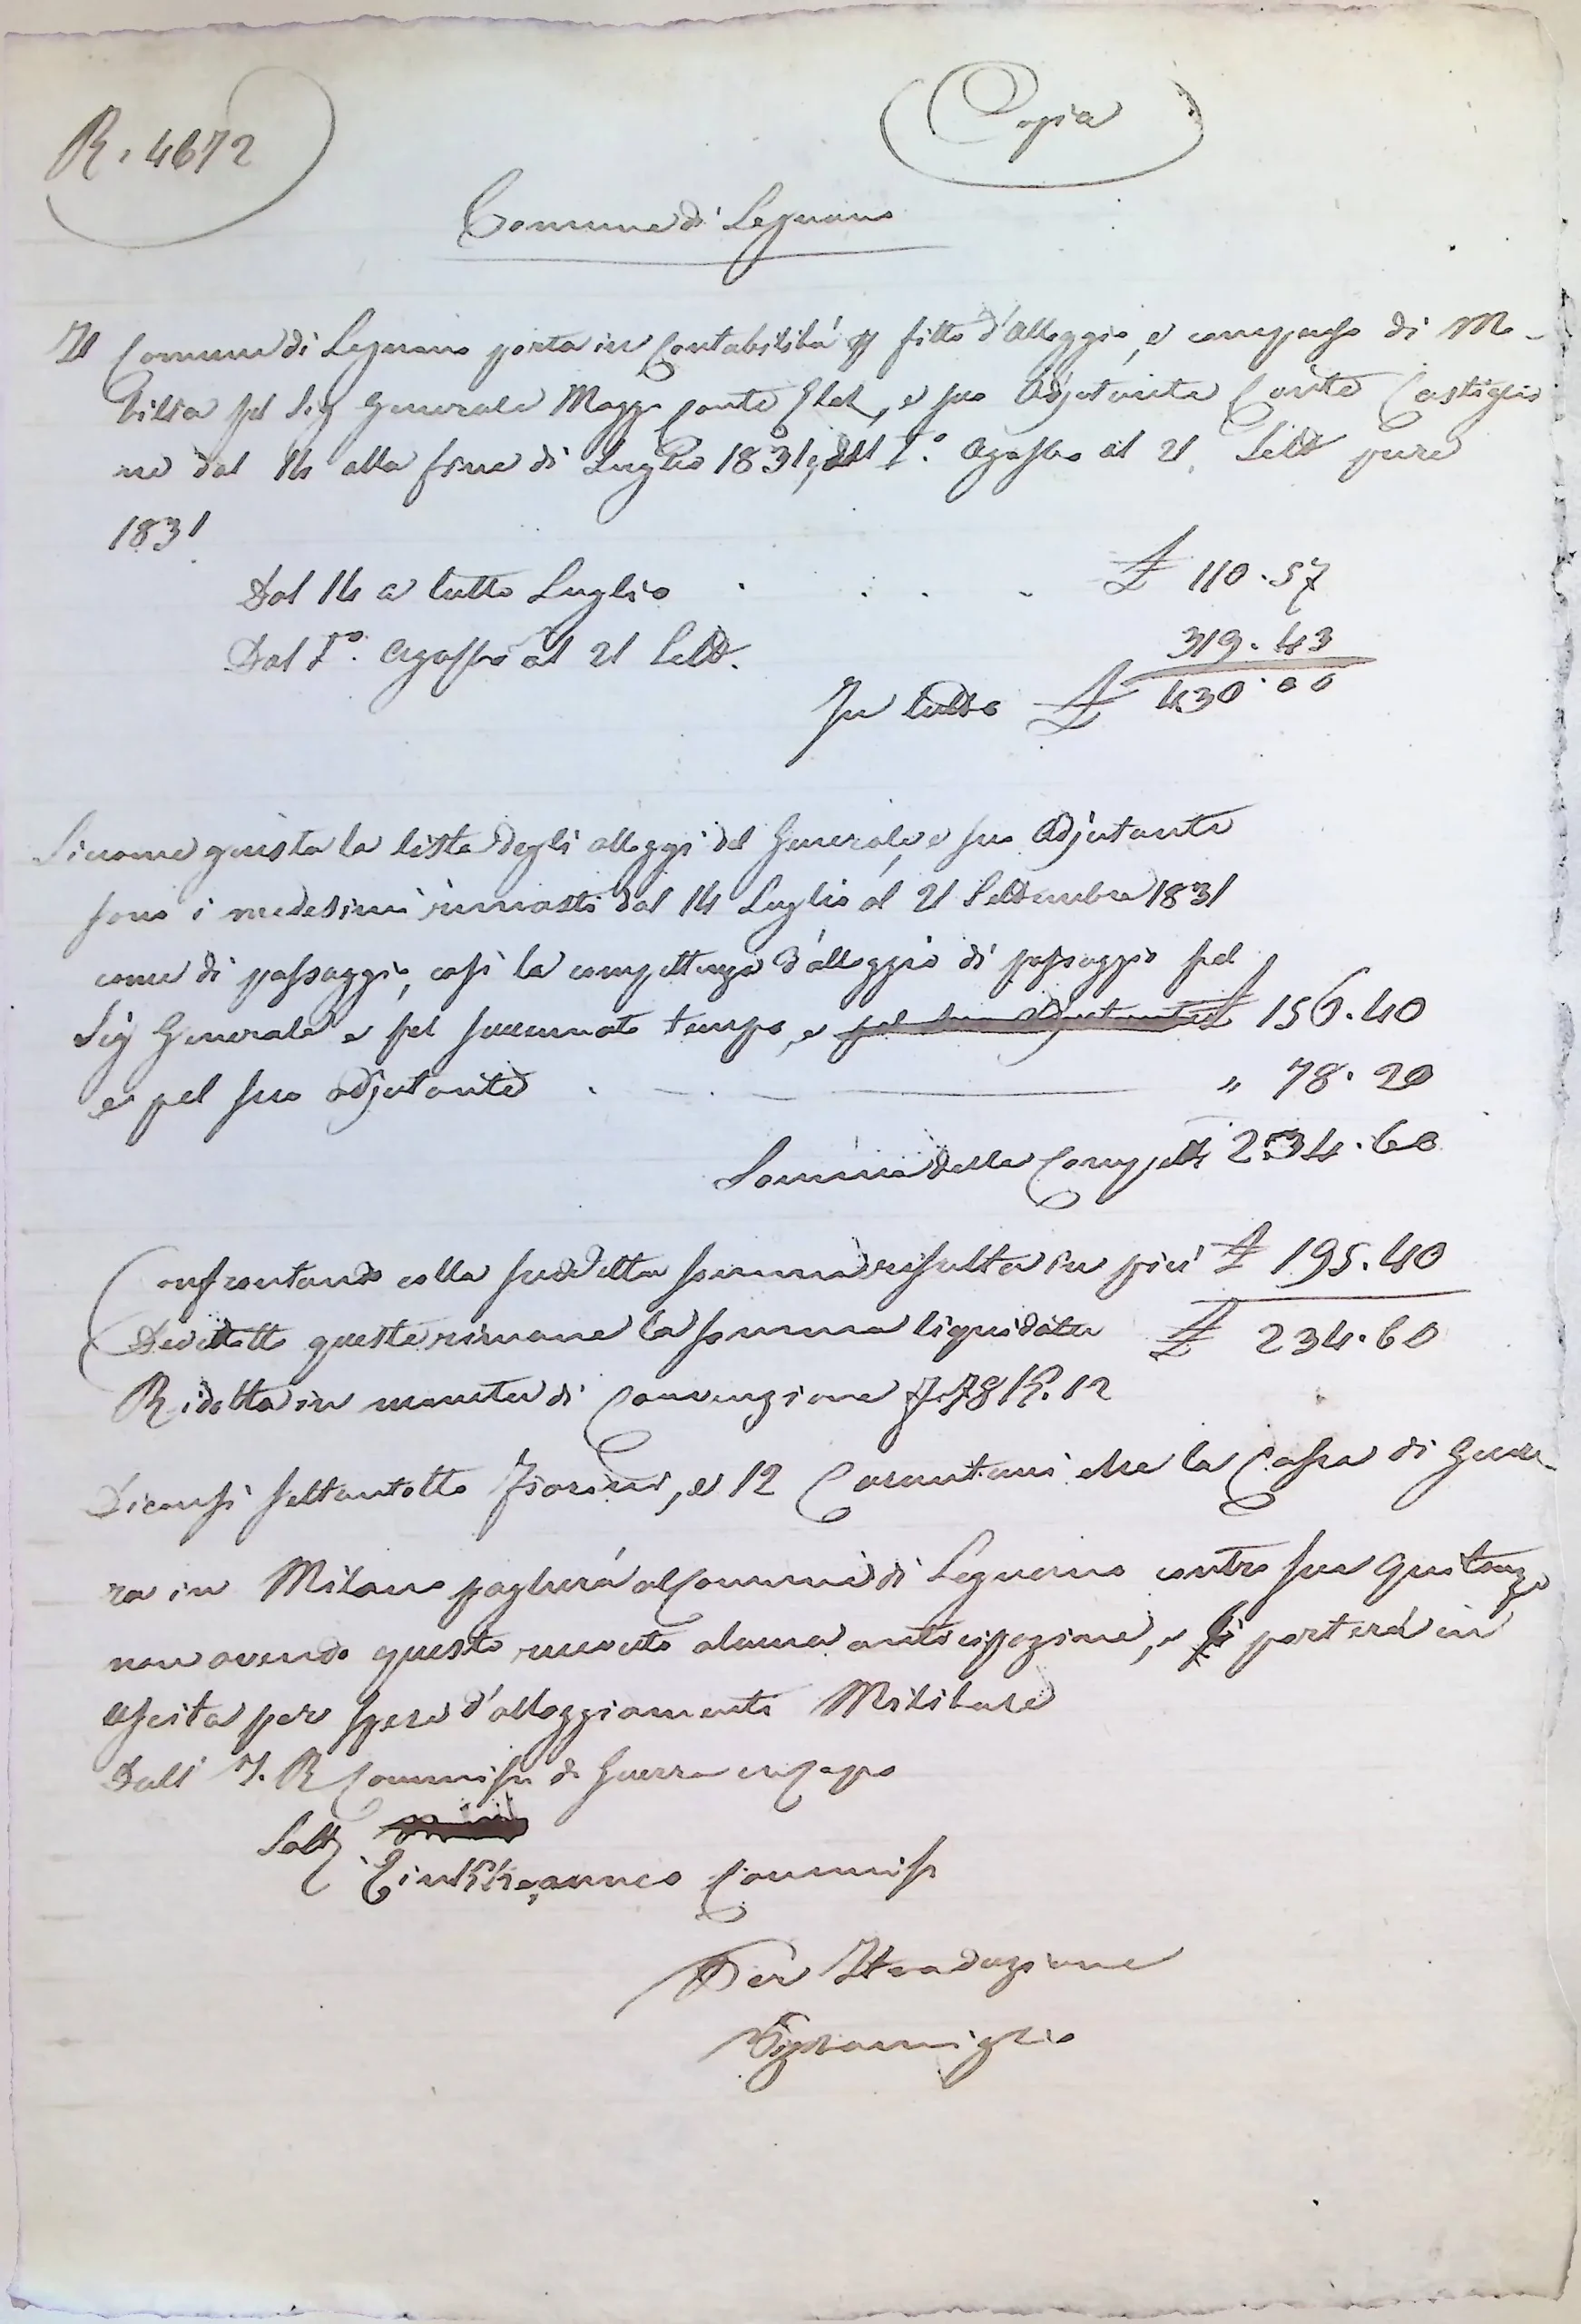 R. 4672
Copia
Comune di Legnano
Il Comune di Legnano porta in Contabilità fitto d'Alloggio, e compenso di Mo-
bilia pel Sig Generale Magg Conte, e suo Adjutante Conte Castiglio
ne dal 14 alla fine di Luglio 1831, dal I.º Agosto al 21, Setts pure
1831
Dal 14 a tutto Luglio . . . . £ 110.57
Dal I.º Agosto al 21 Setts. 319.43
In tutto £ 430.00
Siccome giusta la lista degli alloggi del Generale, e suo Adjutante
sono i medesimi rimasti dal 14 Luglio al 21 Settembre 1831
come di passaggio, così la competenza d'alloggio di passaggio pel
Sig Generale e pel succennato tempo, e pel suo Adjutante £ 156.40
e pel suo adjutante . — . — " 78.20
Somma della Compett 234.60
Confrontando colla suddetta somma risulta in più £ 195.40
Dedotto queste rimane la somma liquidata £ 234.60
Ridotta in moneta di Convenzione F. 78 K. 12
Diconsi settantotto Fiorini, e 12 Carantani che la Cassa di Guer-
ra in Milano pagherà al Comune di Legnano contro sua Quitanza
non avendo questo ricevuto alcuna anticipazione, e si porterà in
Uscita per spese d'alloggiamento Militare
Dall' I. R Commiss di Guerra in Capo
Commiss
Per Traduzione